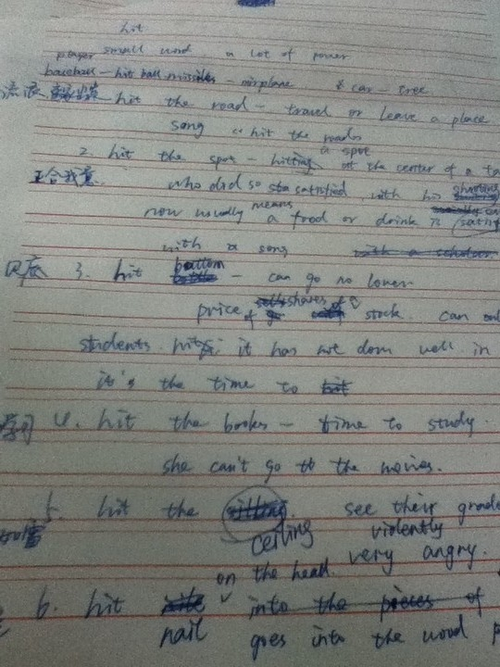 hit
player small word. a lot of power
baseball - hit ball missiles - airplane * car - tree
流浪 hit the road - travel or leave a place
song "hit the roads
a spot
2. hit the spot - hitting at the center of a ta
正合我意. who did so satisfied with his
now usually means a food or drink is satisf
with a song
只底 3. hit bottom - can go no lower
price of shares of stock. can
students. hits it has not done well in
it's the time to
学习 4. hit the books - time to study.
she can't go to the movies.
5. hit the ceiling see their grade
violently
very angry.
6. hit nail on the head. into the pieces of
goes into the wood